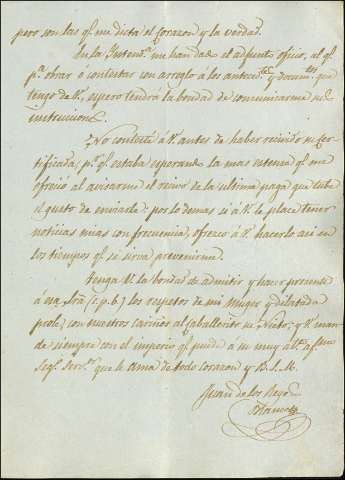 pero son las q.e me dicta el corazon y la verdad.
En la Intend.a me han dado el adjunto oficio, al q.e
p.a obrar o contestar con arreglo à los anteced.tes y docum.tos que
tengo de V. espero tendrá la bondad de comunicarme sus
instrucciones.
No contesté à V. antes de haber recivido su cer-
tificada, p.r q.e estaba esperando la mas estensa q.e me
ofreció al avisarme el recivo de la ultima paga que tube
el gusto de enviarle: por lo demas si à V. le place tener
noticias mias con frecuencia, ofrezco à V. hacerlo asi en
los tiempos q.e se sirva prevenirme.
Tenga V. la bondad de admitir y hacer presente
à esa Sra (c. p. b.) los respetos de mi Muger y dilatada
prole, con nuestros cariños al Caballerito su Nieto; y V. man-
de siempre con el imperio q.e puede à su muy at.to af.mo
seg.o serv.or que le ama de todo corazon y B. S. M.
Juan de los Reyes